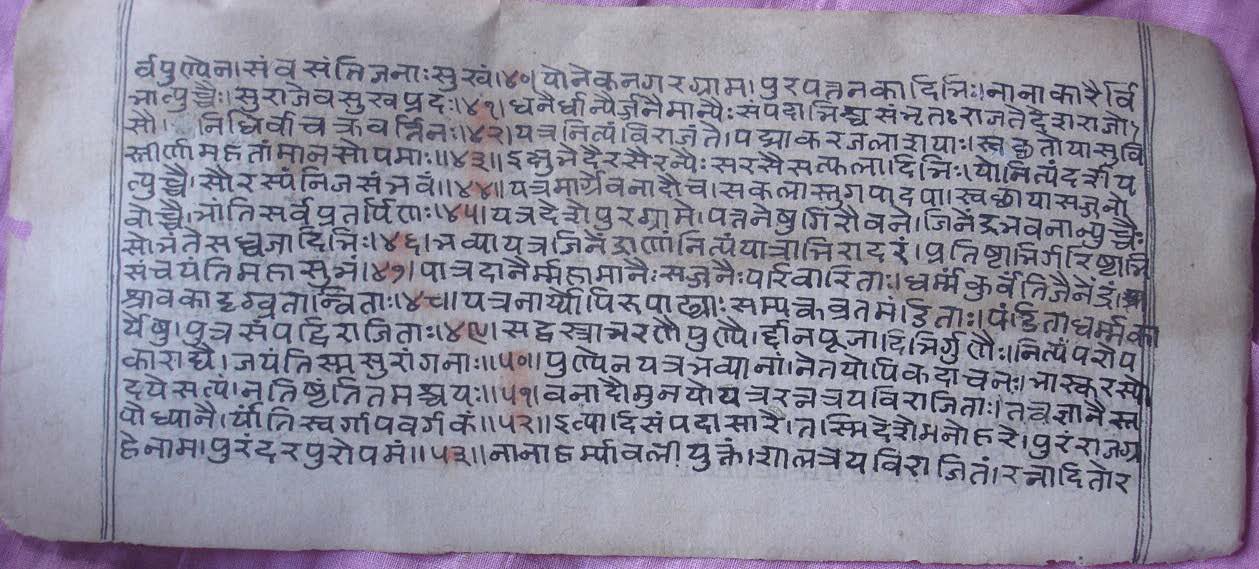 र्वपुण्येन।संवसंतिजनाःसुखं।४०।योनेकनगरग्राम।पुरपत्तनकादिभिः।नानाकारैर्वि
भात्युच्चैः।सुराजेवसुखप्रदः।४१।धनैर्धान्यैर्जनैमान्यैःसंपदाभिश्चसंभृतः।राजतेदेशराजो
सौ। निधिर्वाचक्रवर्त्तिनः।४२।यत्रनित्यंविराजंते।पद्माकरजलाशयाः।
महतांमानसोपमाः॥४३॥इक्षुभेदैरसैरन्यैः।सरसैसत्फलादिभिः।योनित्यंदर्शय
त्युच्चैः।सौरस्यंनिजसंभवं॥४४॥यत्रमार्गेवनादौच।सफलास्तुंगपादपाः।
भांतिसर्वप्रतर्पिताः।४५।यत्रदेशेपुरग्रामे।पत्तनेषुगिरौवने।जिनेंद्रभवनान्युच्चैः
सोभंतेसध्वजादिभिः।४६।भव्यायत्रजिनेंद्राणांनित्यंयात्राभिरादरं।प्रतिष्टाभिर्गरिष्टाभि
संचयंतिमहासुभं।४७।पात्रदानैर्म्महामानैःसज्जनैःपरिवारिताः।धर्म्मंकुर्वंतिजैनेंद्रं।
श्रावकादृग्वृतान्विताः।४८।यत्रनार्य्योपिरूपाढ्याःसम्यक्त्वव्रतमंडिताः।पंडिताधर्म्मका
र्येषु।पुत्रसंपद्विराजिताः।४९।सद्वस्त्राभरणैपुण्यै।र्द्दानपूजादिभिर्गुणैः।नित्यंपरोप
काराद्यै।जयंतिस्मसुरांगनाः॥५०॥पुण्येनयत्रभव्यानां।नेतयोपिकदाचनः।भास्करस्यो
दयेसत्यं।नतिष्टंतितमश्चयः॥५१।वनादौमुनयोयत्ररत्नत्रयविराजिताः।तत्वज्ञानैस्त
पोध्यानै।र्यांतिस्वर्गापवर्गकं॥५२॥इत्यादिसंपदासारै।तस्मिंदेशेमनोहरे।पुरंराजगृ
हेनाम।पुरंदरपुरोपमं॥५३॥नानाहर्म्यावलीयुक्तं।शालत्रयविराजितं।रत्नादितोर